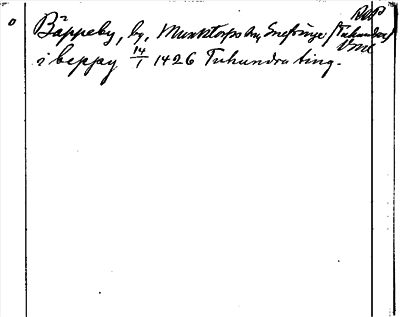 RAP
Bäppeby, by, Munktorps sn, Snefringe /Tuhundra/
Vml
i beppay 14/1 1426 Tuhundra ting.